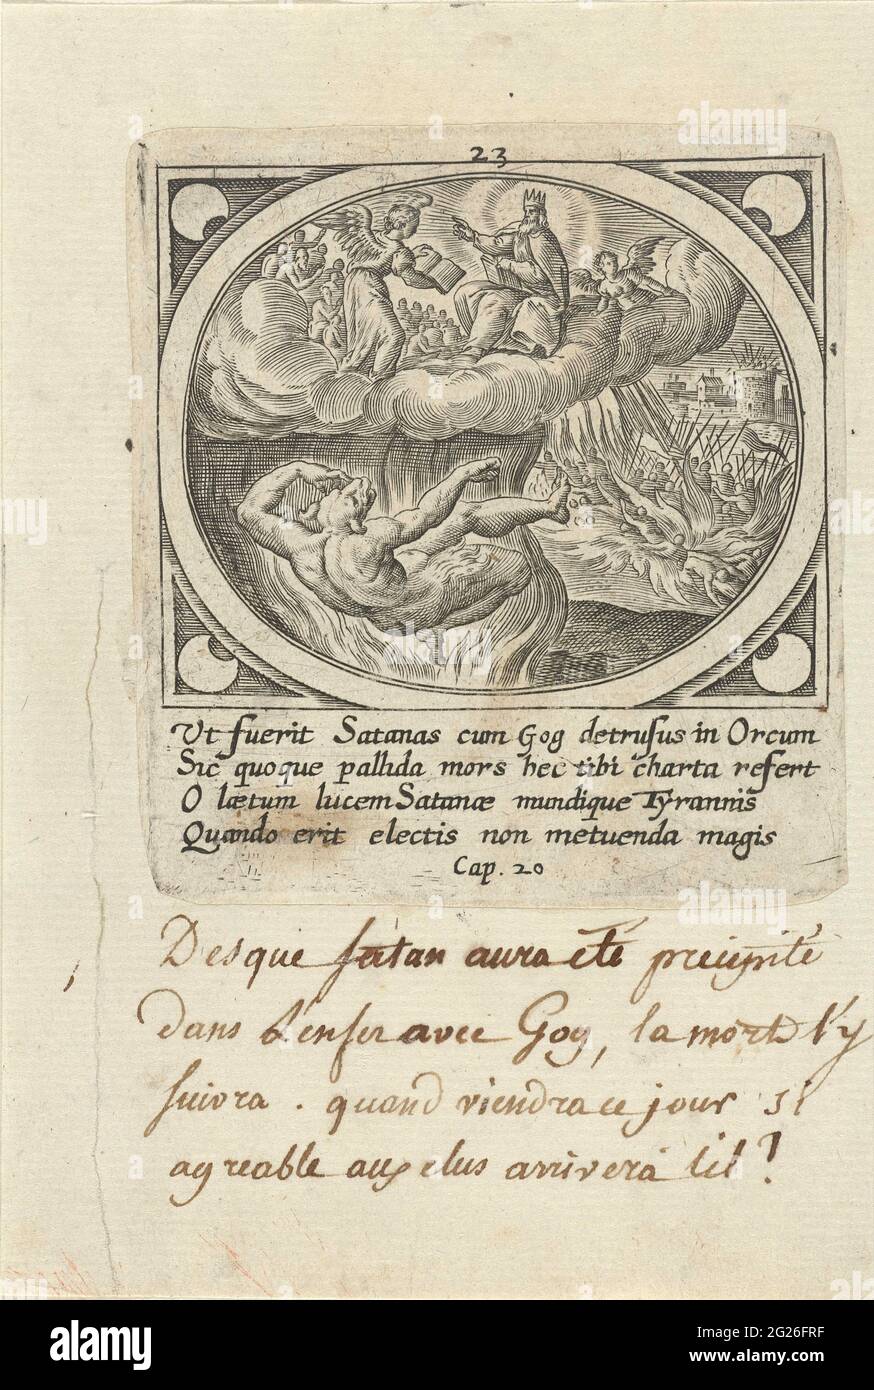 23
Ut fuerit Satanas cum Gog detrusus in Orcum
Sic quoque pallida mors hec tibi charta refert
O lætum lucem Satanæ mundique Tyrannis
Quando erit electis non metuenda magis
Cap. 20
Desque satan aura eté precipité
dans l'enfer avec Gog, la mort l'y
suivra. quand viendra ce jour si
agreable aux elus arrivera til?
alamy
Image ID: 2G26FRF
www.alamy.com